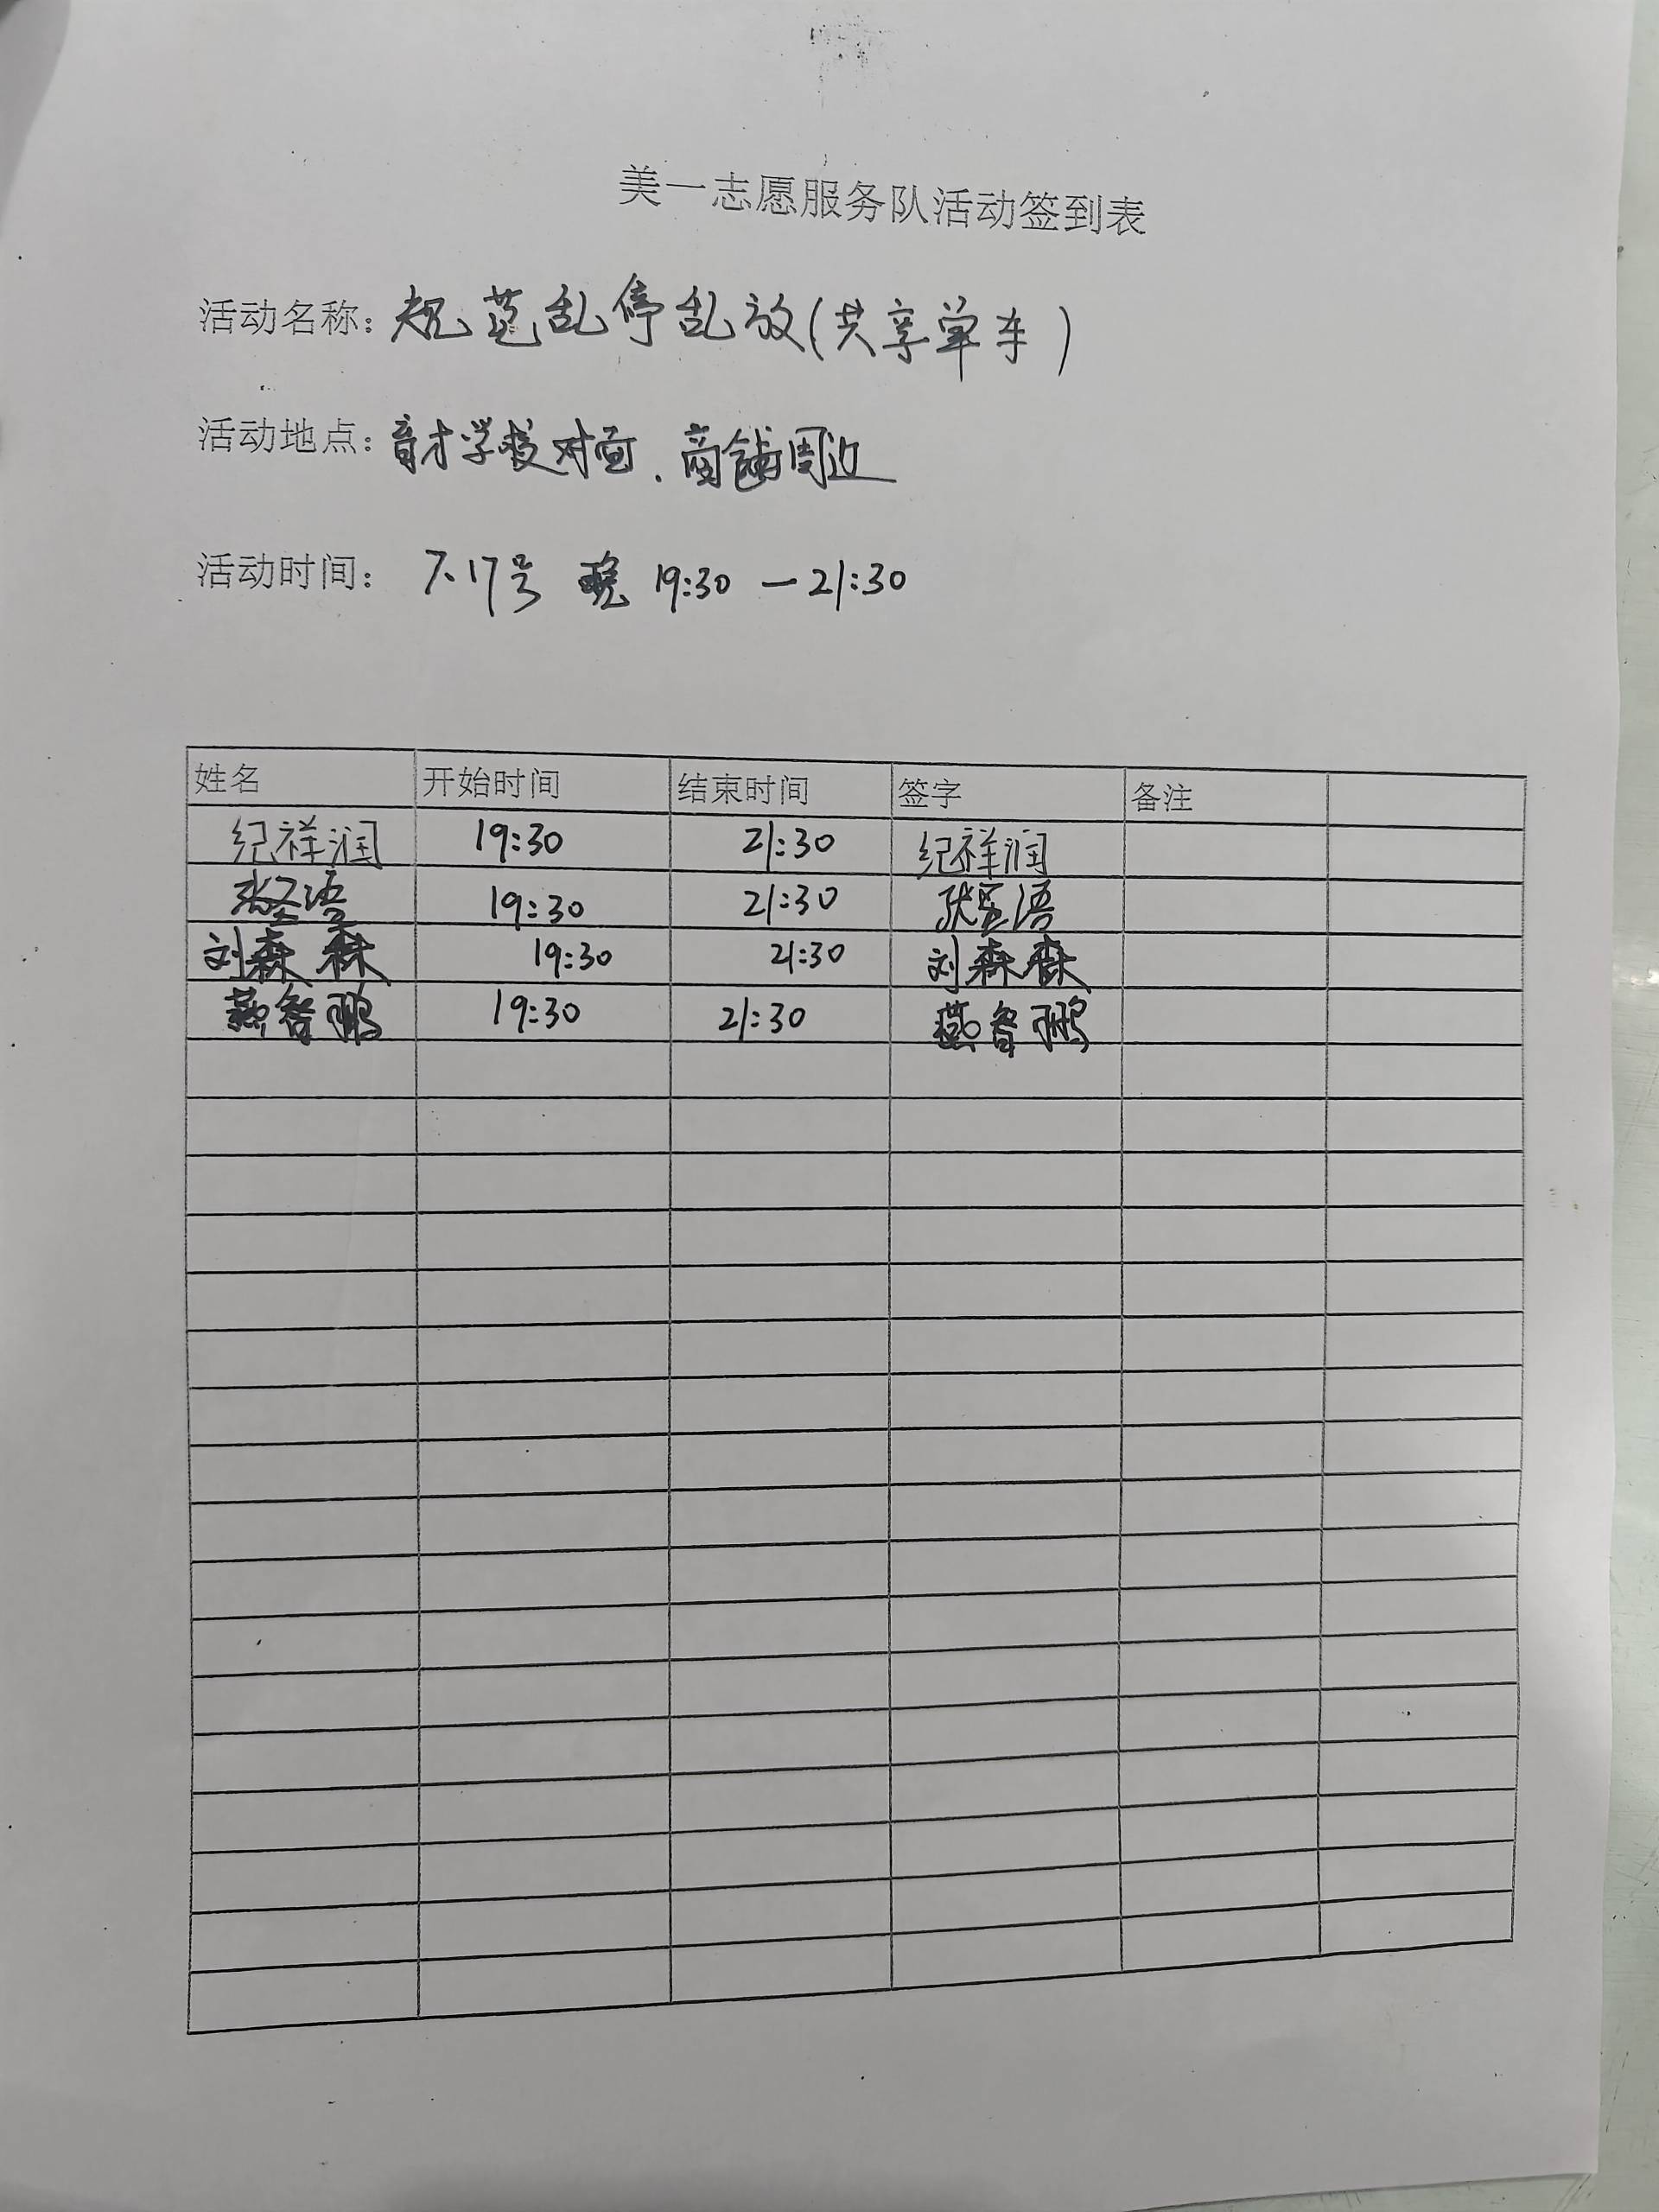 美一志愿服务队活动签到表
活动名称：规范乱停乱放(共享单车)
活动地点：育才学校对面.商铺周近
活动时间：7.17号 晚 19:30 — 21:30
姓名 开始时间 结束时间 签字 备注
纪祥润 19:30 21:30 纪祥润
张圣语 19:30 21:30 张圣语
刘森森 19:30 21:30 刘森森
燕智鹏 19:30 21:30 燕智鹏